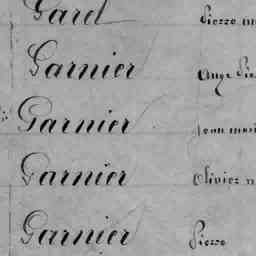 Gard Pierre
Garnier Ange
Garnier Jean
Garnier Olivier
Garnier Pierre